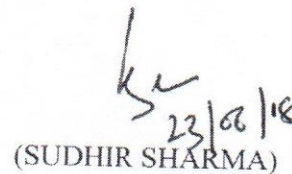 23/08/18
(SUDHIR SHARMA)